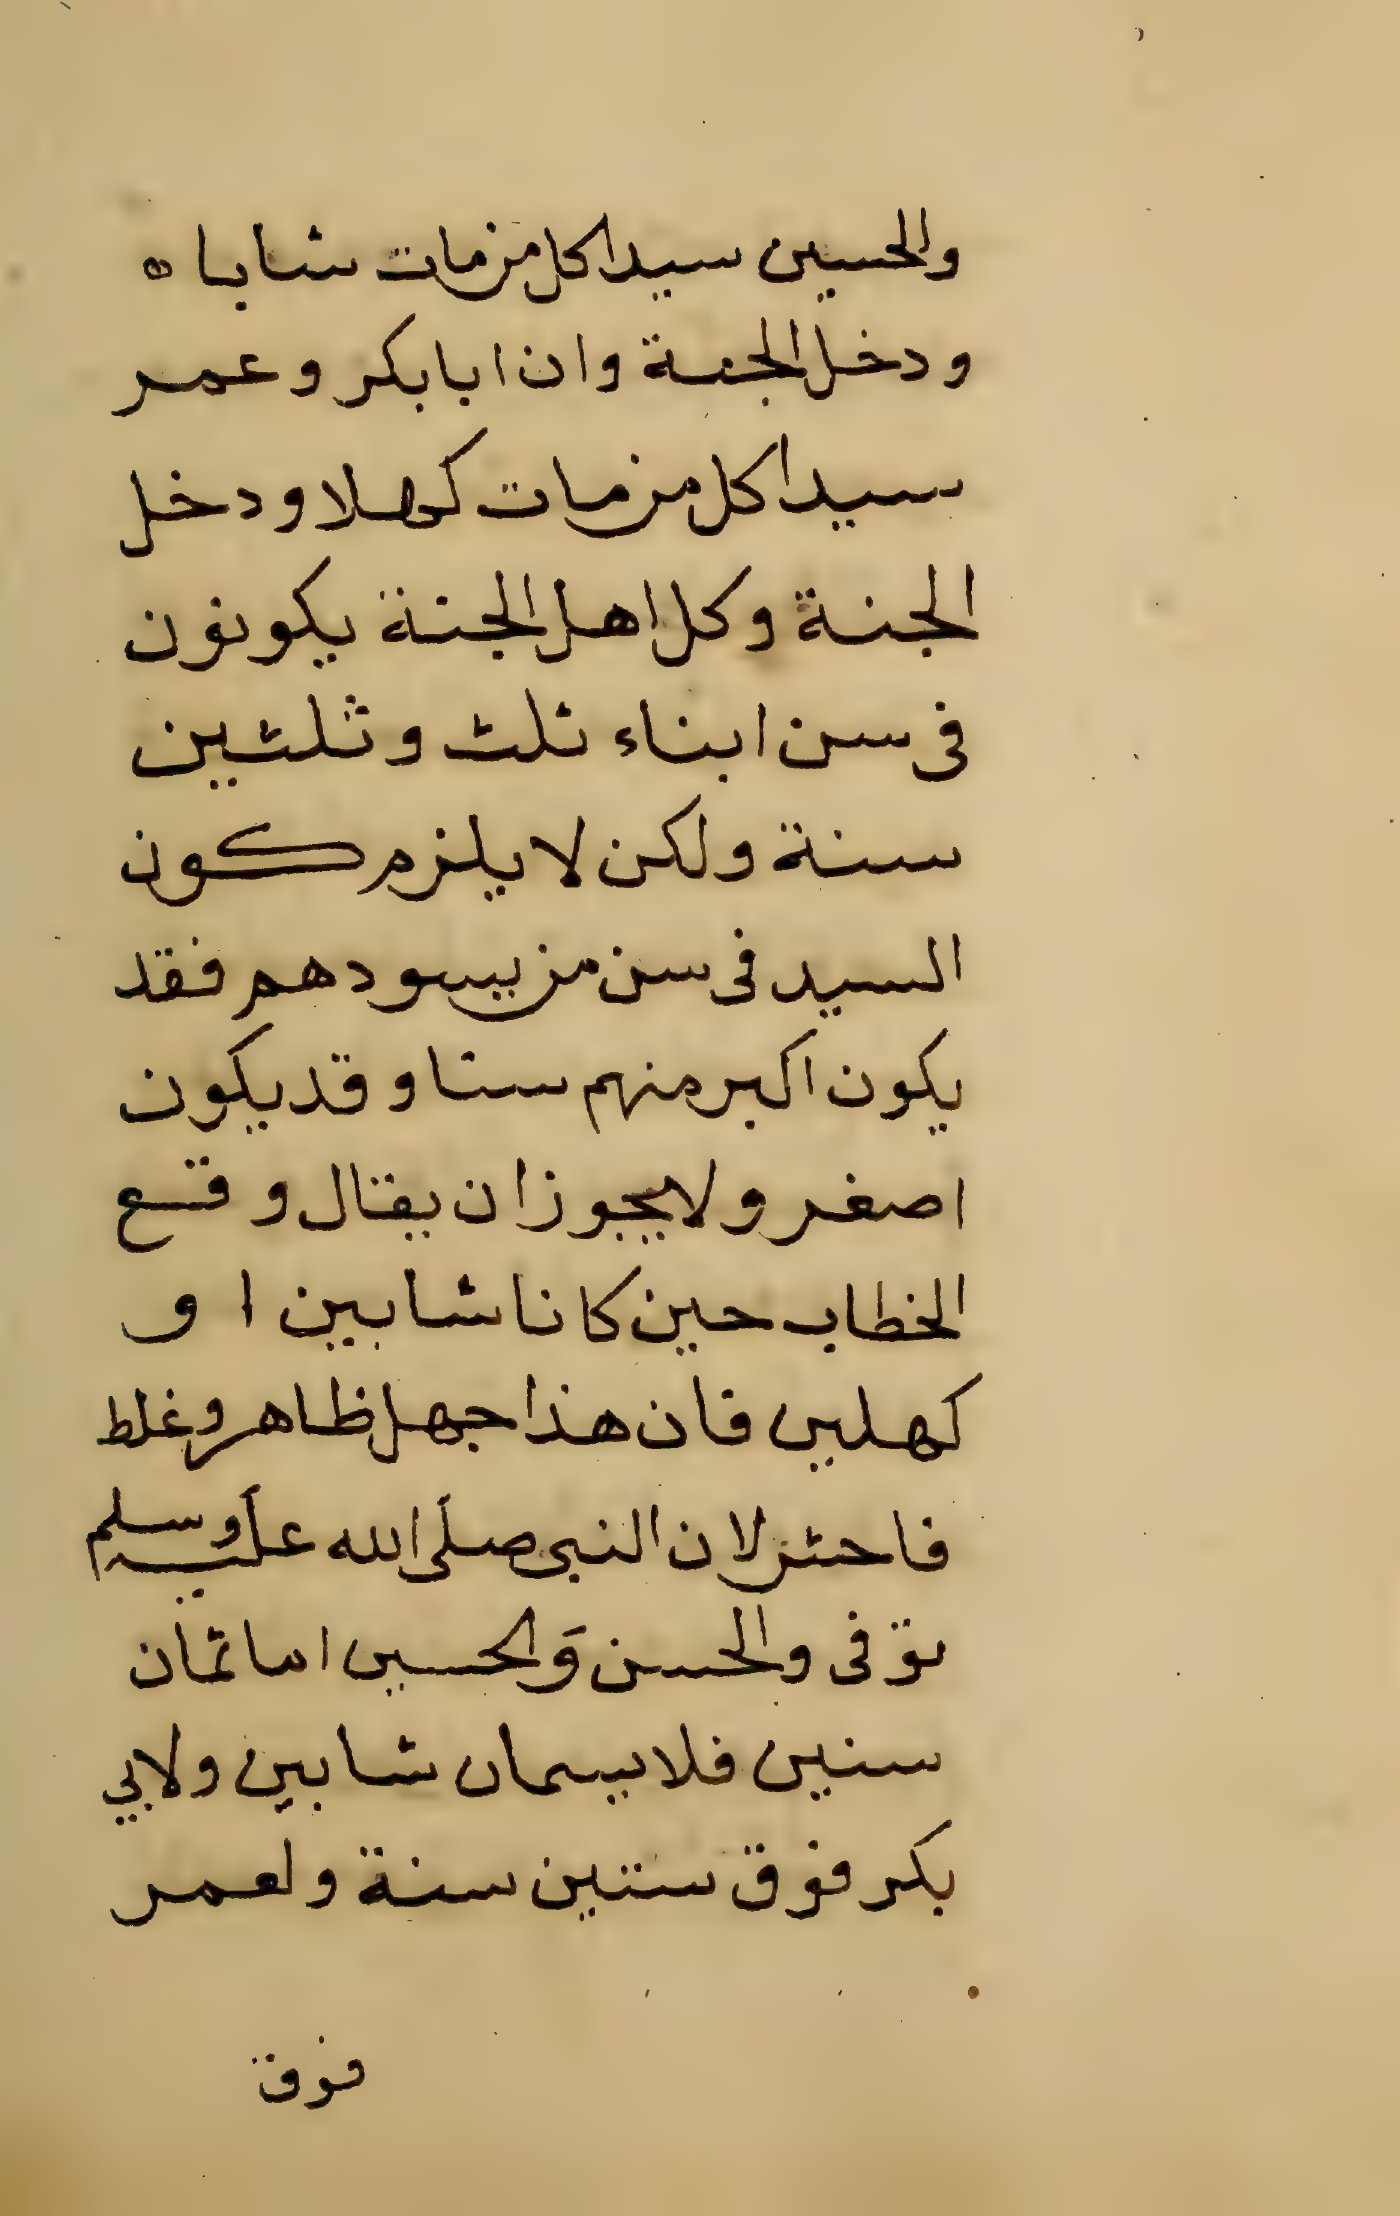 والحسين سيدا كل من مات شابا ه
ودخل الجنة وان ابا بكر وعمر
سيدا كل من مات كهلا ودخل
الجنة وكل اهل الجنة يكونون
فى سن ابناء ثلث وثلثين
سنة ولكن لا يلزم كون
السيد فى سن من يسودهم فقد
يكون اكبر منهم سنا وقد يكون
اصغر ولا يجوز ان يقال وقع
الخطاب حين كانا شابين او
كهلين فان هذا جهل ظاهر وغلط
فاحش لان النبى صلى الله عليه وسلم
توفى والحسن والحسين ابنا ثمان
سنين فلا يسمان شابين ولابي
بكر فوق ستين سنة ولعمر
فوق